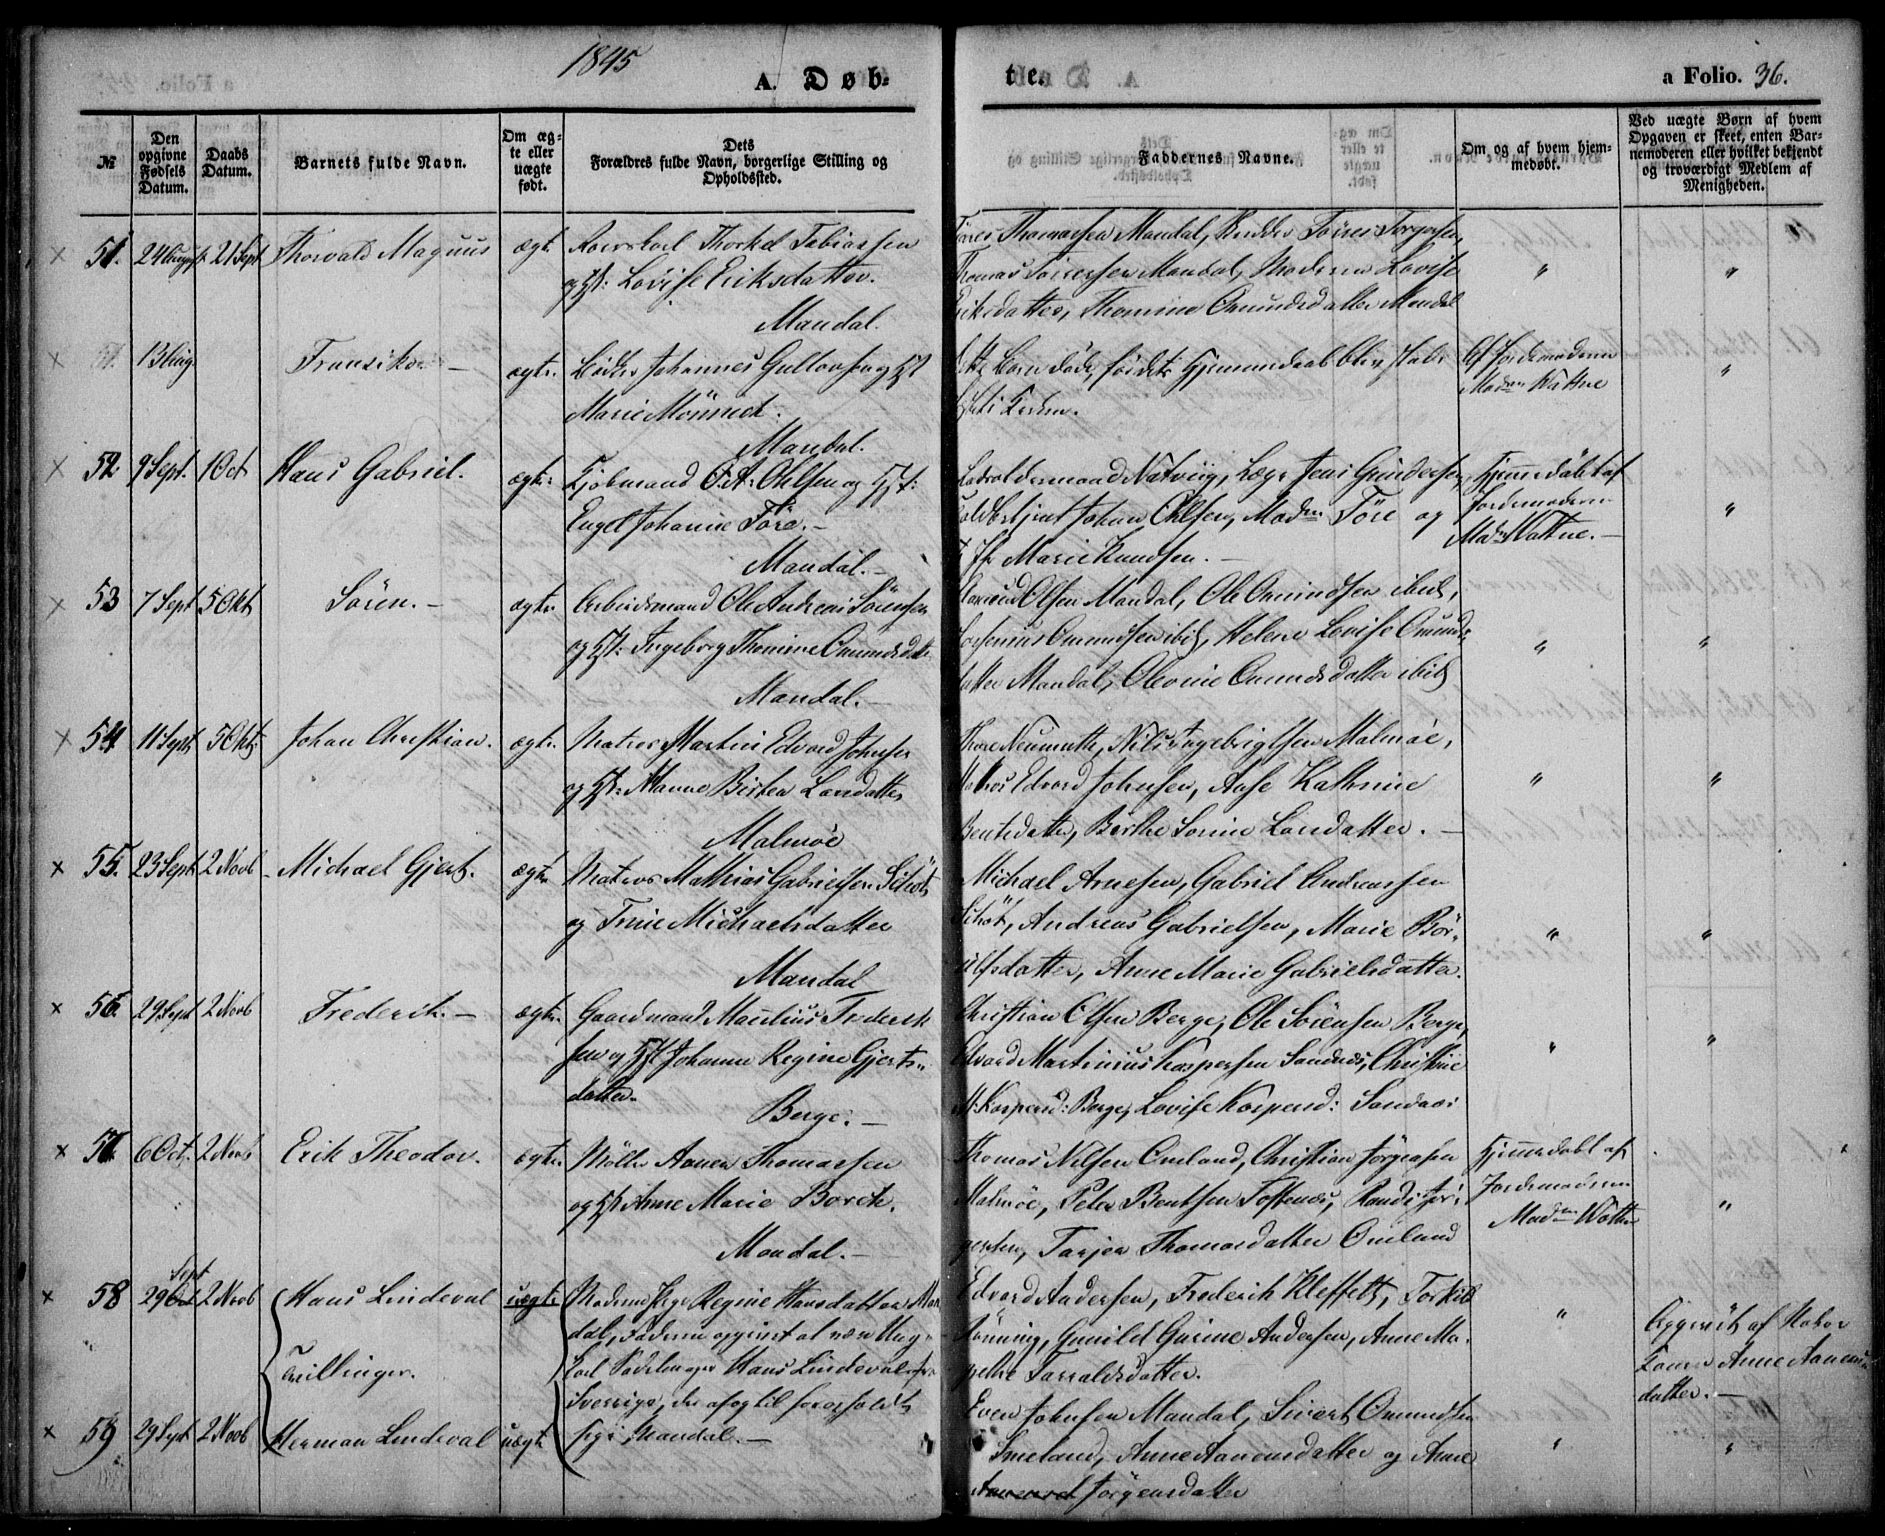 1845
A. Døb-
te.
a Folio. 36.
№
Den opgivne Fødsels Datum.
Daabs Datum.
Barnets fulde Navn.
Om ægte eller uægte født.
Dets Forældres fulde Navn, borgerlige Stilling og Opholdssted.
Faddernes Navne.
Om og af hvem hjemmedøbt.
Ved uægte Børn af hvem Opgaven er skeet, enten Barnemoderen eller hvilket bekjendt og troværdigt Medlem af Menigheden.
51. 24 August 21 Sept Thorvald Magnus ægte Thorkel Tobiassen
og Hst: Lovise Eriksdatter.
Mandal.
Thomassen Mandal, Torgersen,
Thomas Mandal, Moderen Lovise
Eriksdatter, Thomine Omundsdatter Mandal
" "
13 Aug Fransiska ægte. Bødker Johannes Gullovsen og Hst
Marie Mönnich.
Mandal.
Barn døde, Hjemmedaab blev
Af Jordemoderen
Madm Wattne
"
52. 9 Sept. 1 Oct Hans Gabriel. ægte. Kjöbmand O. A. Ohlsen og Hst:
Engel Johanne Töre.-
Mandal.-
Natviig, Jens Gundersen,
Johan Ohlsen, Madm Töre og
Jfr Marie Knudsen.-
Hjemmedöbt af
Jordemoderen
Madm Wattne.-
"
53 7 Sept 5 Okt Sören.- ægte. Arbeidsmand Ole Andreas Sörensen
og Hst: Ingeborg Thomine Omundsdatter
Mandal.-
Olsen Mandal, Ole Omundsen ibid,
Omundsen ibid, Helene Lovise Omunds-
datter Mandal, Olevine Omundsdatter ibid
" "
54 11 Sept 5 Okt: Johan Christian. ægte. Matros Martin Edvard Johnsen
og Hst: Hanne Birthe Larsdatter
Malmøe
Thore Neumuth, Nils Ingebrigtsen Malmøe,
Matros Edvard Johnsen, Aase Kathrine
Bentsdatter, Berthe Sorine Larsdatter.-
" "
55. 23 Sept 2 Novb Michael Gjert. ægte Matros Mathias Gabrielsen Schöt
og Trine Michaelsdatter
Mandal
Michael Arnesen, Gabriel Andreassen
Schöt, Andreas Gabrielsen, Marie Bör-
ulfsdatter, Anne Marie Gabrielsdatter.
" "
56. 29 Sept 2 Novb Frederik.- ægte. Gaardmand Maulius Frederik
sen og Hst Johanne Regine Gjerts-
datter.
Berge.-
Christian Olsen Berge, Ole Sörensen Berge,
Edvard Martinius Kaspersen Sandnæs, Christine
M: Kaspersd: Berge, Lovise Kaspersd: Sandnæs
" "
57. 6 Oct. 2 Novb Erik Theodor. ægte. Möller Aanen Thomassen
og Hst Anne Marie Borch.
Mandal.-
Thomas Nilsen Omland, Christian Jörgensen
Malmöe, Peter Bentsen Toftenæs, Randi Jör-
gensen, Tarjer Thomasdatter Omland
Hjemmedöbt af
Jordemoderen
Madm Wattne
"
58 29 Sept 2 Novb Hans Lindeval uægte. Moderen Pige Regine Hansdatter Man
dal, Faderen opgivet at være Ung-
karl Sadelmager Hans Lindeval fra
Sverrige, der
sig i Mandal.-
Edvard Andersen, Frederik Kleffelt, Torkild
Jönning, Gunild Gurine Andersen, Anne Ma-
grethe Tarraldsdatter.
"
Opgivet af
Anne Aanens
datter.-
Tvillinger.
59 29 Sept 2 Novb Herman Lindeval uægte
Even Johnsen Mandal, Sivert Omundsen
Imeland, Anne Aanensdatter og Anne
Jörgensdatter
" "